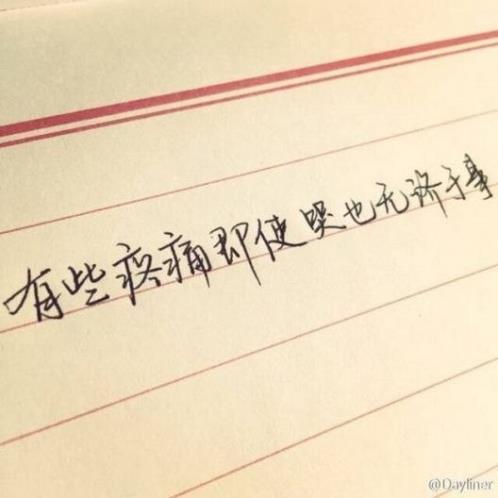 有些疼痛即使哭也无济于事
@Dayliner